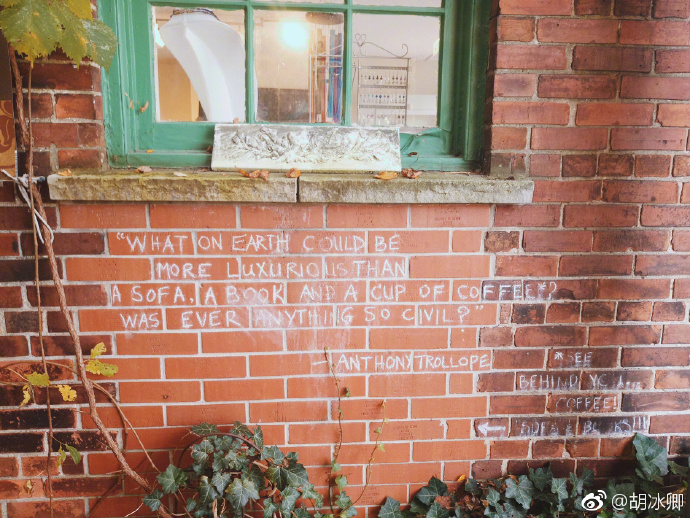 "WHAT ON EARTH COULD BE
MORE LUXURIOUS THAN
A SOFA, A BOOK AND A CUP OF COFFEE*?
WAS EVER ANYTHING SO CIVIL?"
— ANTHONY TROLLOPE
*SEE
BEHIND
COFFEE!
← SOFA & BOOKS!!!
@胡冰卿